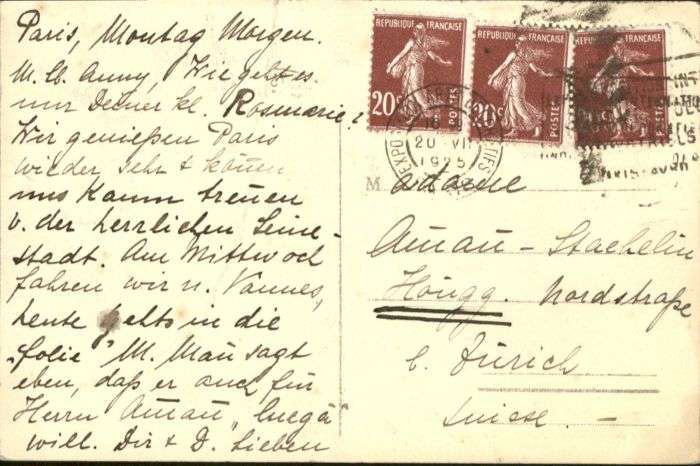 Paris, Montag Morgen.
M. Lb. Anny, Wie geht es
nur Deiner kl. Rosmarie?
Wir genießen Paris
wieder sehr & können
uns kaum trennen
v. der herrlichen Seine-
stadt. Am Mittwoch
fahren wir n. Vannes,
heute gehts in die
"folie" M. Man sagt
eben, daß er auch für
Herrn Aman
will. Dir & D. Lieben
REPUBLIQUE FRANÇAISE
20c
POSTES
REPUBLIQUE FRANÇAISE
20c
POSTES
REPUBLIQUE FRANÇAISE
POSTES
20 VII
1925
Madame
Aman-Staehelin
Höngg. Nordstraße
b. Zürich
Suisse.-